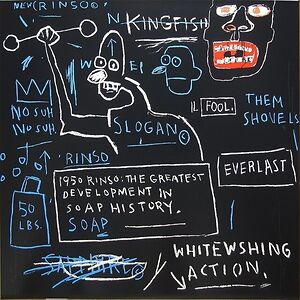 NEW (RINSO©
N KINGFISH
W E
NO SUH.
NO SUH.
SLOGAN©
IL FOOL.
THEM
SHOVELS
RINSO
1950 RINSO: THE GREATEST
DEVELOPMENT IN
SOAP HISTORY.
SOAP
EVERLAST
50
LBS.
WHITEWSHING
ACTION.